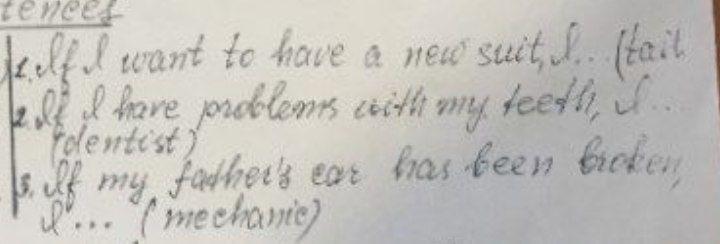 tences
1. If I want to have a new suit, I... (tail
2. If I have problems with my teeth, I...
(dentist)
3. If my father's car has been broken,
I... (mechanic)